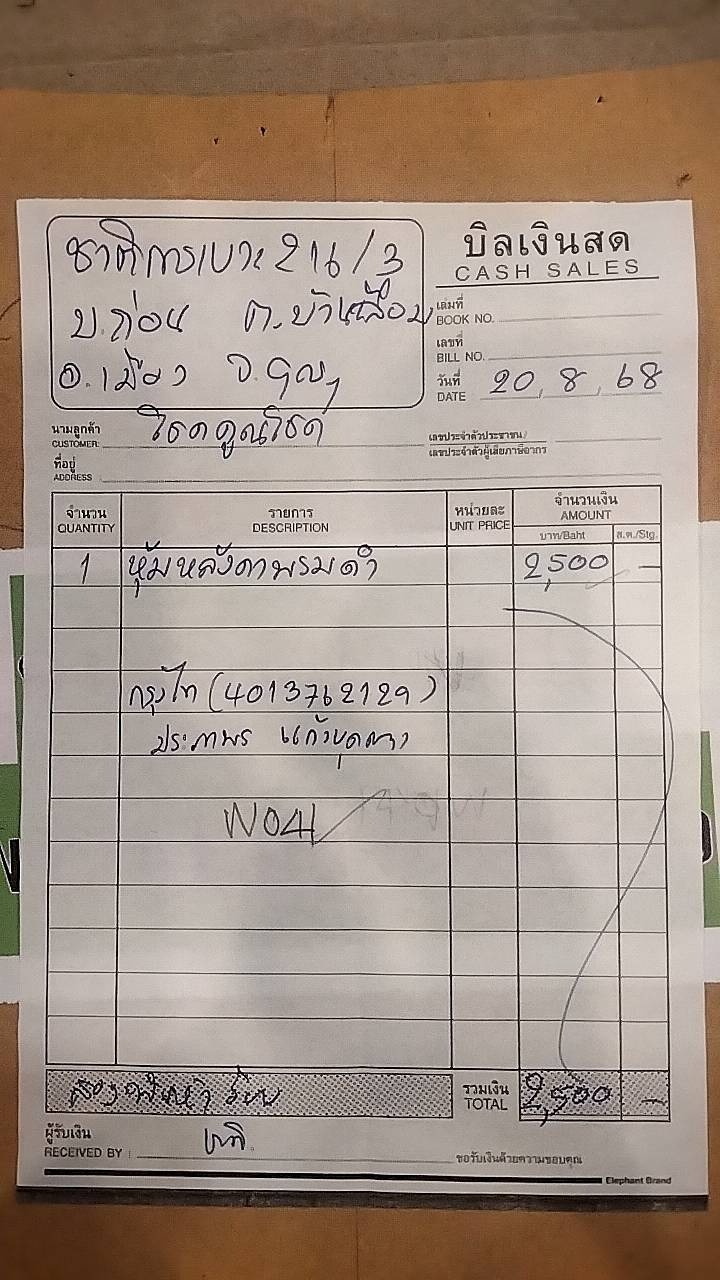 ชาติการเบาะ 216/3
บ.ก่อน ต.บ้านเลื่อม
อ.เมือง จ.อุดรฯ
บิลเงินสด
CASH SALES
เล่มที่
BOOK NO.
เลขที่
BILL NO.
วันที่ 20, 8, 68
DATE
นามลูกค้า โชคคูณโชค
CUSTOMER:
เลขประจำตัวประชาชน/
เลขประจำตัวผู้เสียภาษีอากร
ที่อยู่
ADDRESS
จำนวน รายการ หน่วยละ จำนวนเงิน
QUANTITY DESCRIPTION UNIT PRICE AMOUNT
บาท/Baht ส.ต./Stg.
1 หุ้มหลังคาพรมดำ 2,500 —
กรุงไทย (4013762129)
ประภาพร
W041
สองพันห้าร้อย รวมเงิน 2,500 —
TOTAL
ผู้รับเงิน
RECEIVED BY : ชาติ.
ขอรับเงินด้วยความขอบคุณ
Elephant Brand